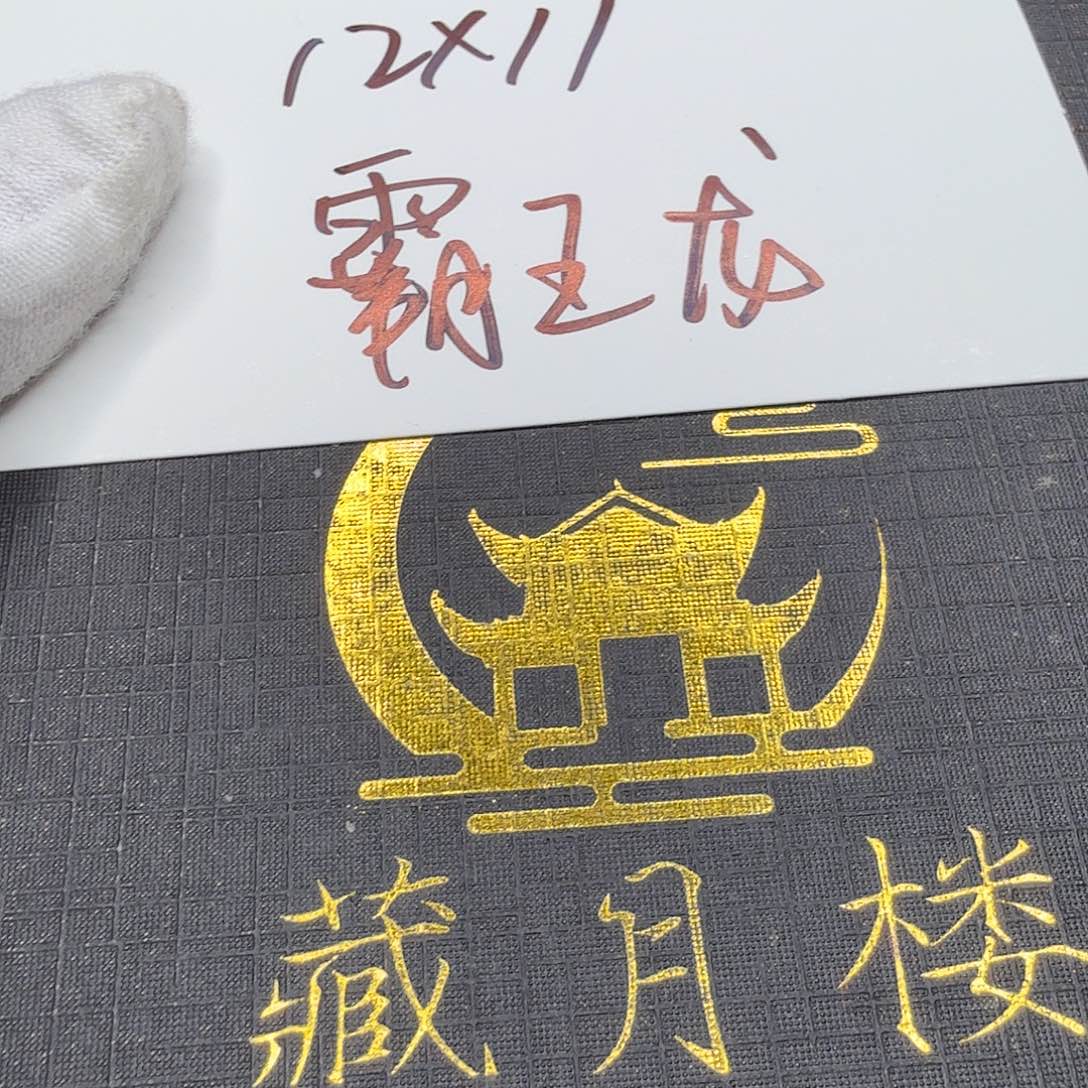 12×11
霸王龙
藏月楼